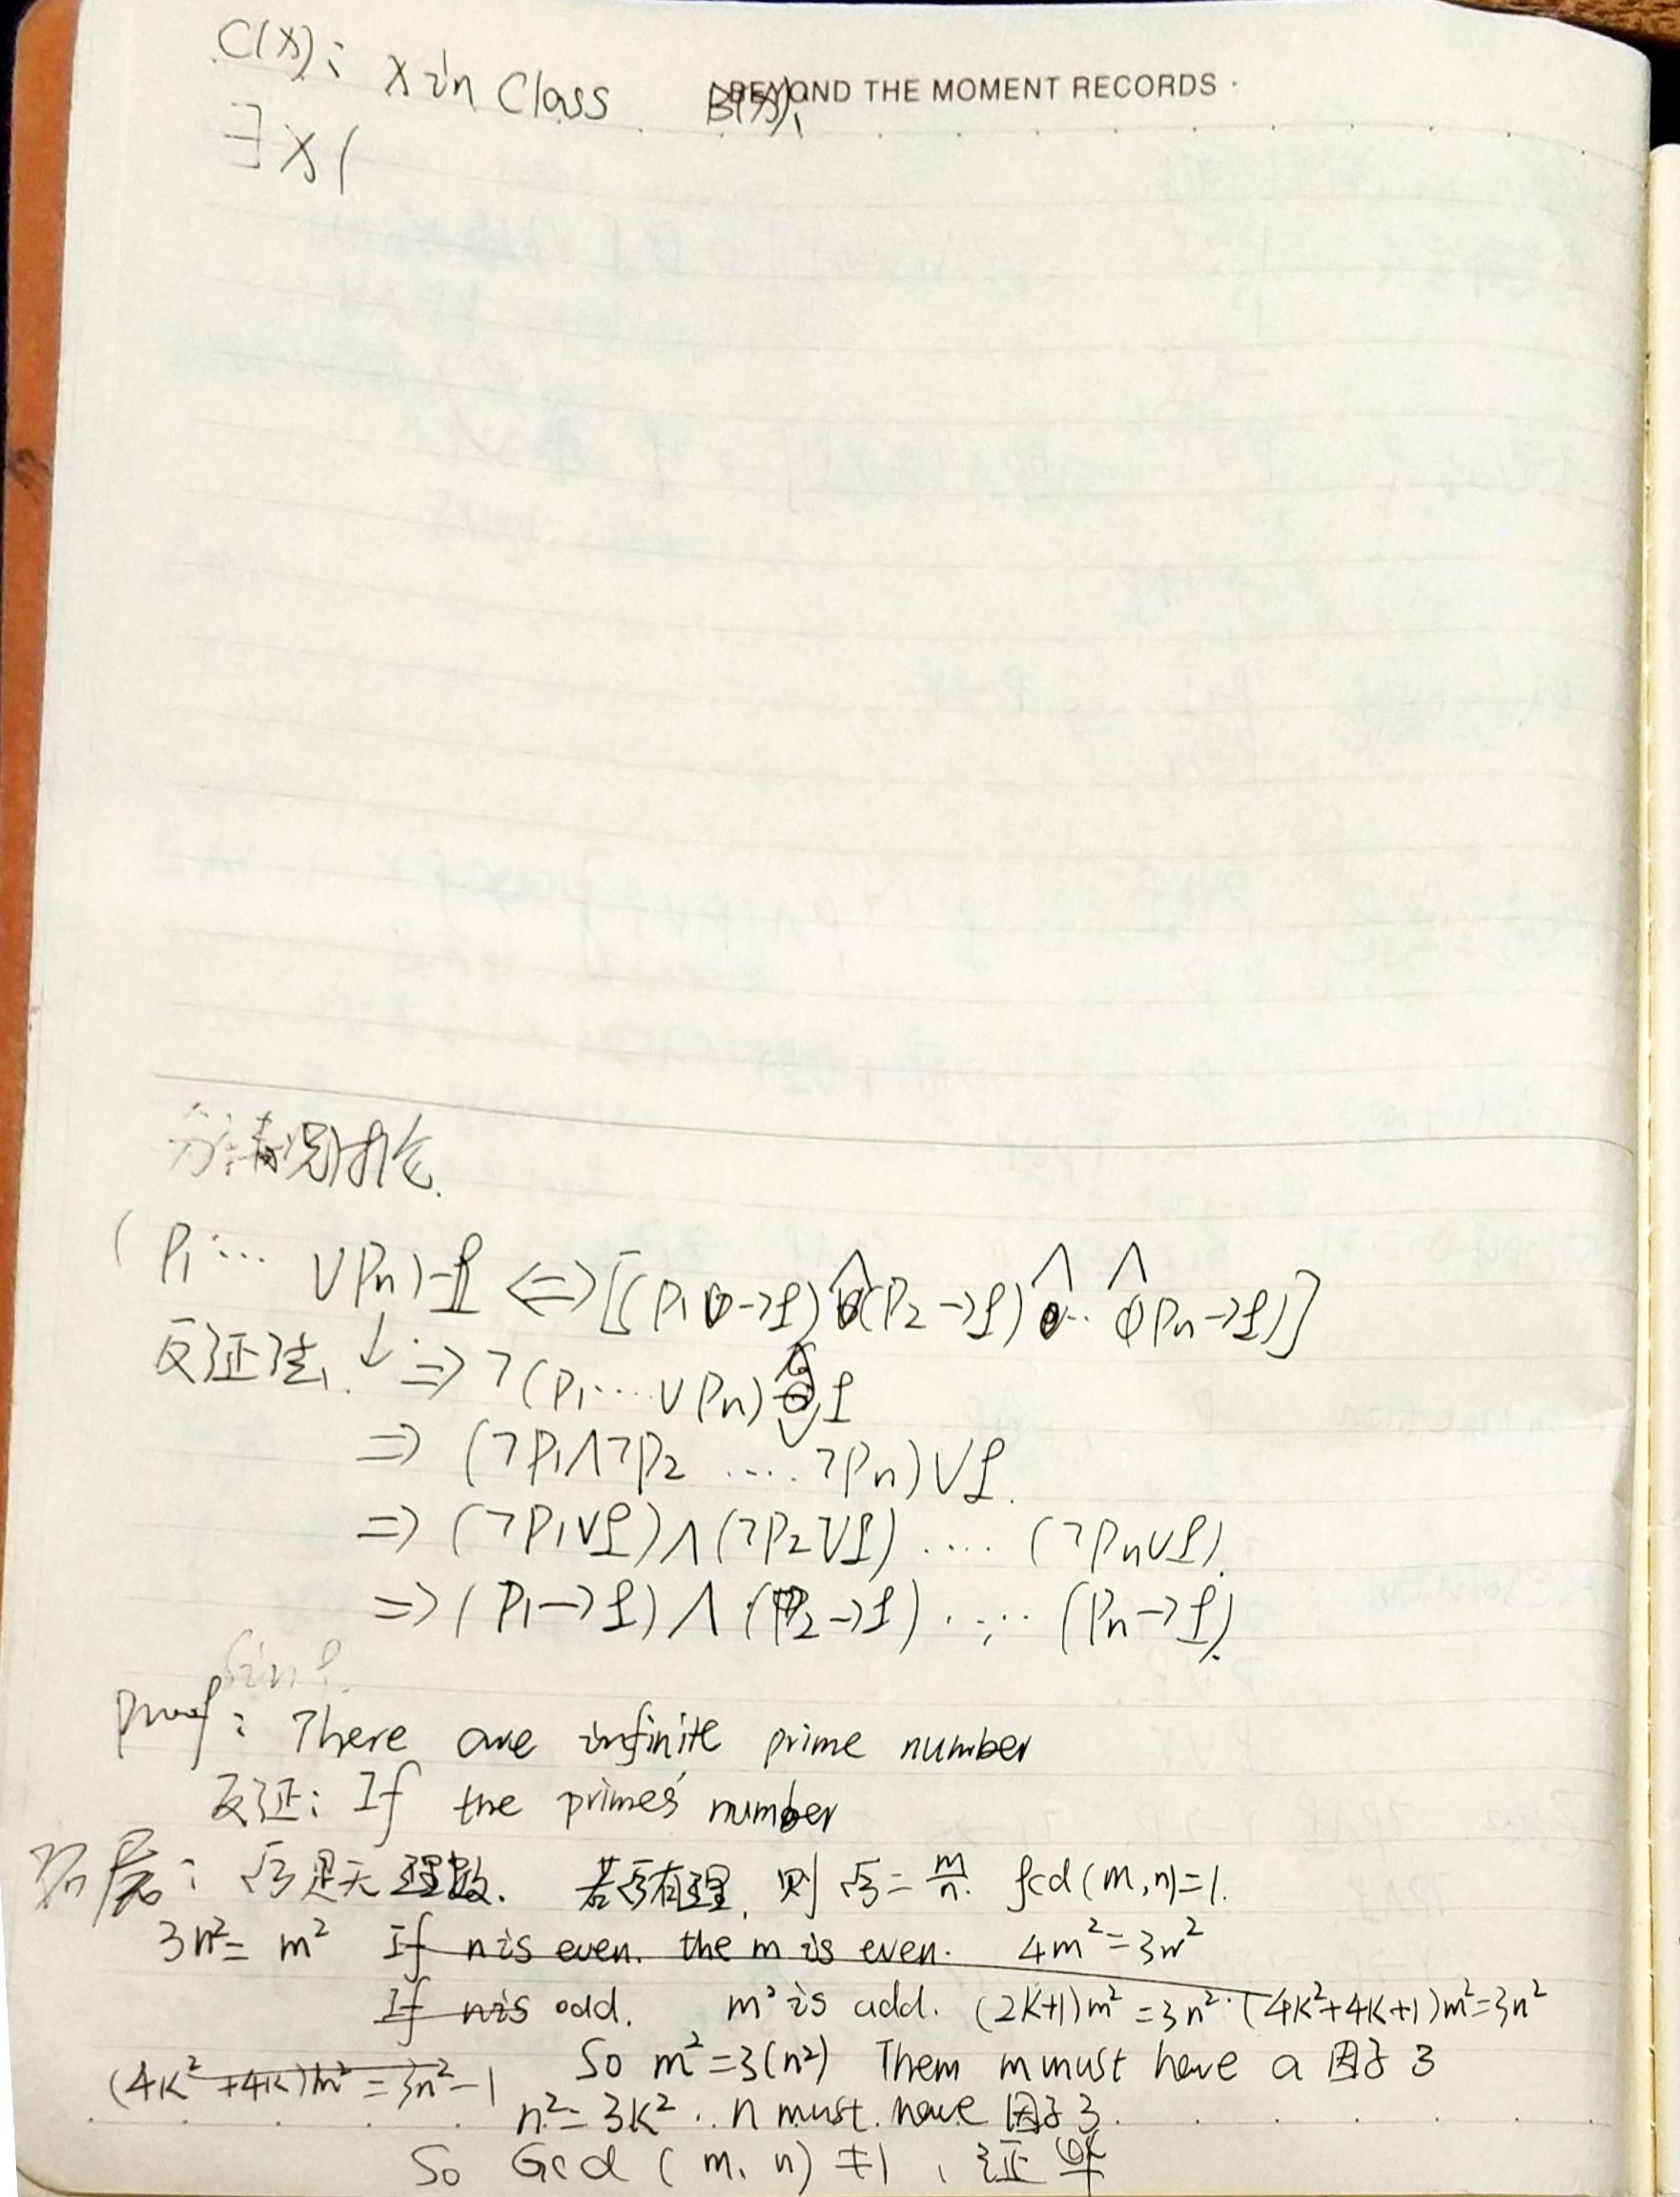 C(x): x in Class B(x):
BEYOND THE MOMENT RECORDS
∃x(
分情况讨论.
(P₁… ∨Pₙ)→q ⇔ [(P₁→q)∧(P₂→q)∧… ∧(Pₙ→q)]
反证法. ↓ ⇒ ¬(P₁…∨Pₙ)∨q
⇒ (¬P₁∧¬P₂ …. ¬Pₙ)∨q.
⇒ (¬P₁∨q)∧(¬P₂∨q) …. (¬Pₙ∨q).
⇒ (P₁→q)∧(P₂→q) ….. (Pₙ→q).
Proof: There are infinite prime number
反证: If the primes' number
拓展: √3是无理数. 若√3有理, 则 √3=m/n. gcd(m,n)=1.
3n²= m² If n is even. the m is even. 4m²=3n²
If n is odd. m² is odd. (2k+1)m²=3n². (4k²+4k+1)m²=3n²
(4k²+4k)m²=3n²-1 So m²=3(n²) Them m must have a 因子 3
n²=3k². n must have 因子 3.
So Gcd (m, n) ≠1, 证毕